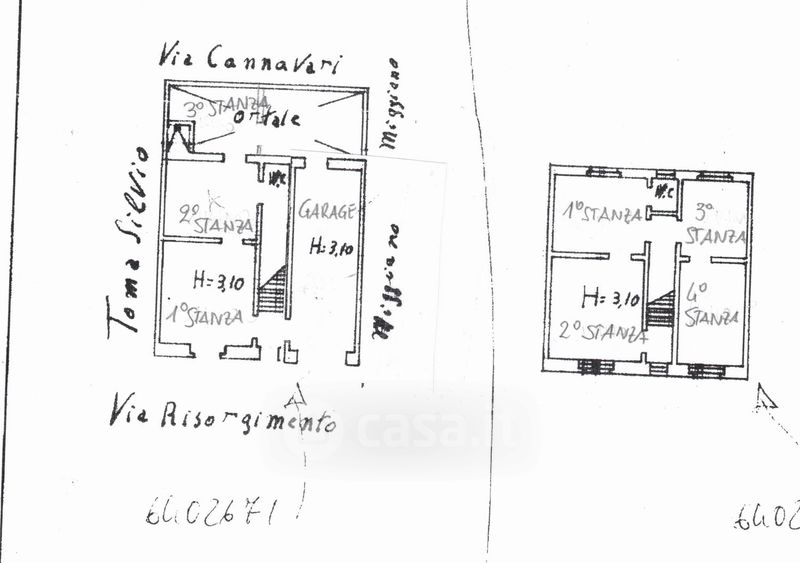 Via Cannavari
3° STANZA
ortale
Miggiano
Toma Silvio
W.C
2° STANZA
GARAGE
H=3,10
H=3,10
1° STANZA
Miggiano
Via Risorgimento
casa.it
6402671
W.C
1° STANZA
3°
STANZA
H=3,10
4°
STANZA
2° STANZA
6402